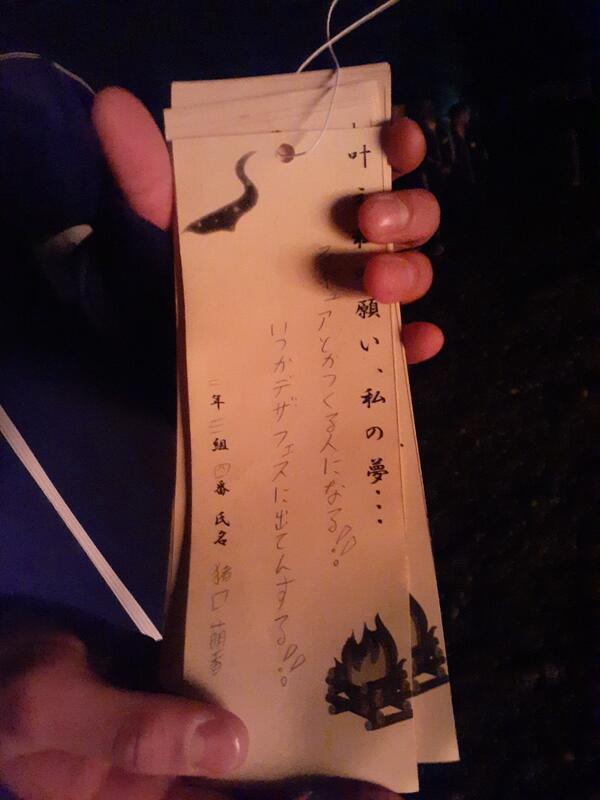 叶 願い、私の夢・・・
ュアとかつくる人になる!!。
いつかデザフェスに出てんする!!。
二年三組四番 氏名 猪口 萌香